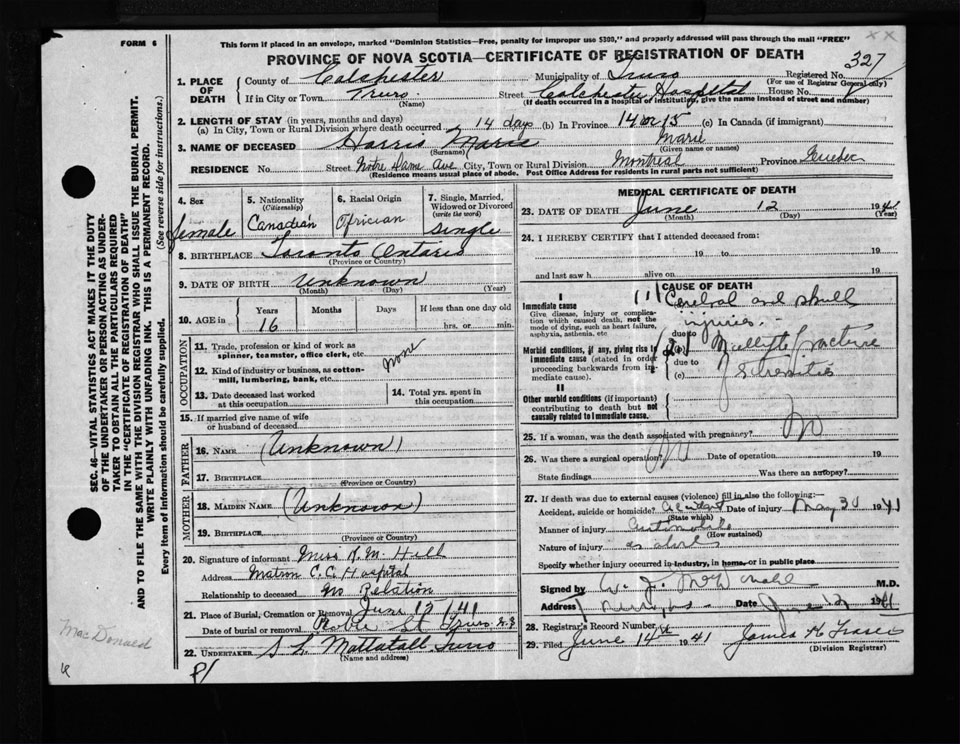 FORM 6
This form if placed in an envelope, marked "Dominion Statistics—Free, penalty for improper use $300," and properly addressed will pass through the mail "FREE"
PROVINCE OF NOVA SCOTIA—CERTIFICATE OF REGISTRATION OF DEATH
327
1. PLACE OF DEATH
County of Colchester Municipality of Truro Registered No.
(For use of Registrar General only)
If in City or Town Truro. Street Colchester Hospital House No.
(Name) (If death occurred in a hospital or institution, give the name instead of street and number)
2. LENGTH OF STAY (in years, months and days)
(a) In City, Town or Rural Division where death occurred 14 days (b) In Province 14 or 15 (c) In Canada (if immigrant)
3. NAME OF DECEASED Harris Marie Marie
(Surname) (Given name or names)
RESIDENCE No. Street Notre Dame Ave City, Town or Rural Division Montreal Province Quebec
(Residence means usual place of abode. Post Office Address for residents in rural parts not sufficient)
4. Sex
female
5. Nationality
(Citizenship)
Canadian
6. Racial Origin
Africian
7. Single, Married, Widowed or Divorced
(write the word)
Single
8. BIRTHPLACE Toronto Ontario
(Province or Country)
9. DATE OF BIRTH Unknown
(Month) (Day) (Year)
10. AGE in Years Months Days If less than one day old
16 hrs. or min.
OCCUPATION
11. Trade, profession or kind of work as spinner, teamster, office clerk, etc.
none
12. Kind of industry or business, as cotton-mill, lumbering, bank, etc.
13. Date deceased last worked at this occupation
14. Total yrs. spent in this occupation
15. If married give name of wife or husband of deceased
FATHER
16. NAME (Unknown)
17. BIRTHPLACE
(Province or Country)
MOTHER
18. MAIDEN NAME (Unknown)
19. BIRTHPLACE
(Province or Country)
20. Signature of informant Miss R. M. Hill
Address Matron C. C. Hospital
Relationship to deceased No Relation
21. Place of Burial, Cremation or Removal June 13 '41
Date of burial or removal Robie St Truro N.S
22. UNDERTAKER S L Mattatall Truro
(Name and address)
MEDICAL CERTIFICATE OF DEATH
23. DATE OF DEATH June 12 1941
(Month) (Day) (Year)
24. I HEREBY CERTIFY that I attended deceased from:
19 to 19
and last saw h alive on 19
CAUSE OF DEATH
I
Immediate cause
Give disease, injury or complication which caused death, not the mode of dying, such as heart failure, asphyxia, asthenia, etc
(1) Cerebral and skull injuries.
due to
Morbid conditions, if any, giving rise to immediate cause (stated in order proceeding backwards from immediate cause).
(b) Multiple fracture
due to
(c) of extremities
II
Other morbid conditions (if important) contributing to death but not causally related to Immediate cause.
25. If a woman, was the death associated with pregnancy? No
26. Was there a surgical operation? No Date of operation 19
State findings Was there an autopsy?
27. If death was due to external causes (violence) fill in also the following:
Accident, suicide or homicide? Accident Date of injury May 30 1941
(State which)
Manner of injury Automobile
(How sustained)
Nature of injury as above
Specify whether injury occurred in industry, in home, or in public place
Signed by W. J. M.D.
Address Date June 12 1941
28. Registrar's Record Number
29. Filed June 14th 1941 James H Fraser
(Division Registrar)
SEC. 46—VITAL STATISTICS ACT MAKES IT THE DUTY OF THE UNDERTAKER OR PERSON ACTING AS UNDERTAKER TO OBTAIN ALL THE PARTICULARS REQUIRED IN THE "CERTIFICATE OF REGISTRATION OF DEATH" AND TO FILE THE SAME WITH THE DIVISION REGISTRAR WHO SHALL ISSUE THE BURIAL PERMIT.
WRITE PLAINLY WITH UNFADING INK. THIS IS A PERMANENT RECORD.
Every item of information should be carefully supplied. (See reverse side for instructions.)
MacDonald